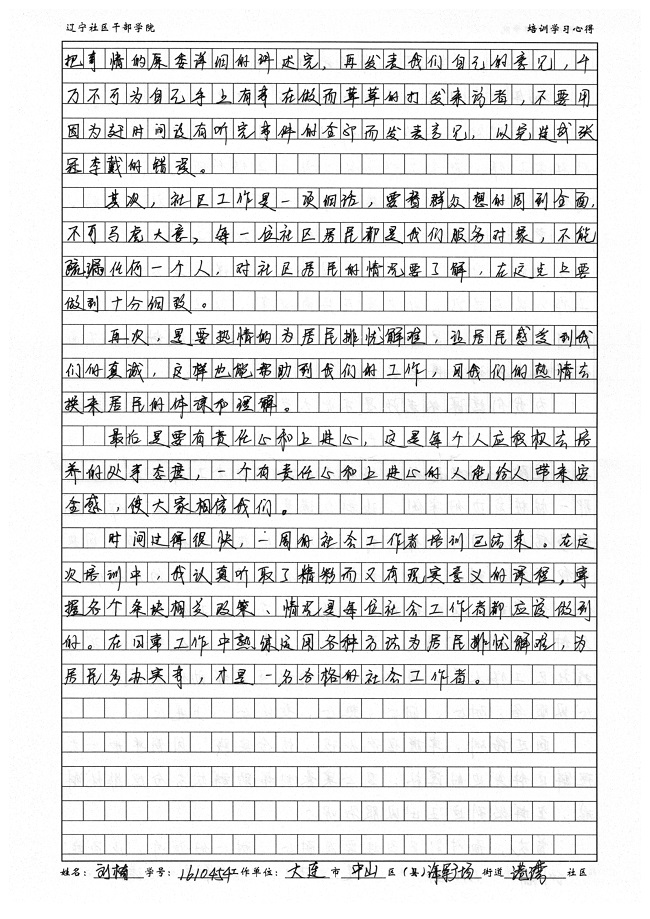 辽宁社区干部学院 培训学习心得
把事情的原委详细的讲述完，再发表我们自己的意见，千
万不可为自己手上有事在做而草草的打发来访者，不要用
因为赶时间没有听完事件的全部而发表意见，以免造成张
冠李戴的错误。
其次，社区工作是一项细活，要替群众想的周到全面，
不可马虎大意，每一位社区居民都是我们服务对象，不能
疏漏任何一个人，对社区居民的情况要了解，在这点上要
做到十分细致。
再次，是要热情的为居民排忧解难，让居民感受到我
们的真诚，这样也能帮助到我们的工作，用我们的热情去
换来居民的体谅和理解。
最后是要有责任心和上进心，这是每个人应积极去培
养的处事态度，一个有责任心和上进心的人能给人带来安
全感，使大家相信我们。
时间过得很快，一周的社会工作者培训已结束。在这
次培训中，我认真听取了精彩而又有现实意义的课程，掌
握各个条块相关政策、情况是每位社会工作者都应该做到
的。在日常工作中熟练运用各种方法为居民排忧解难，为
居民多办实事，才是一名合格的社会工作者。
姓名：刘楠 学号：1610454 工作单位：大连 市 中山 区（县） 街道 港湾 社区